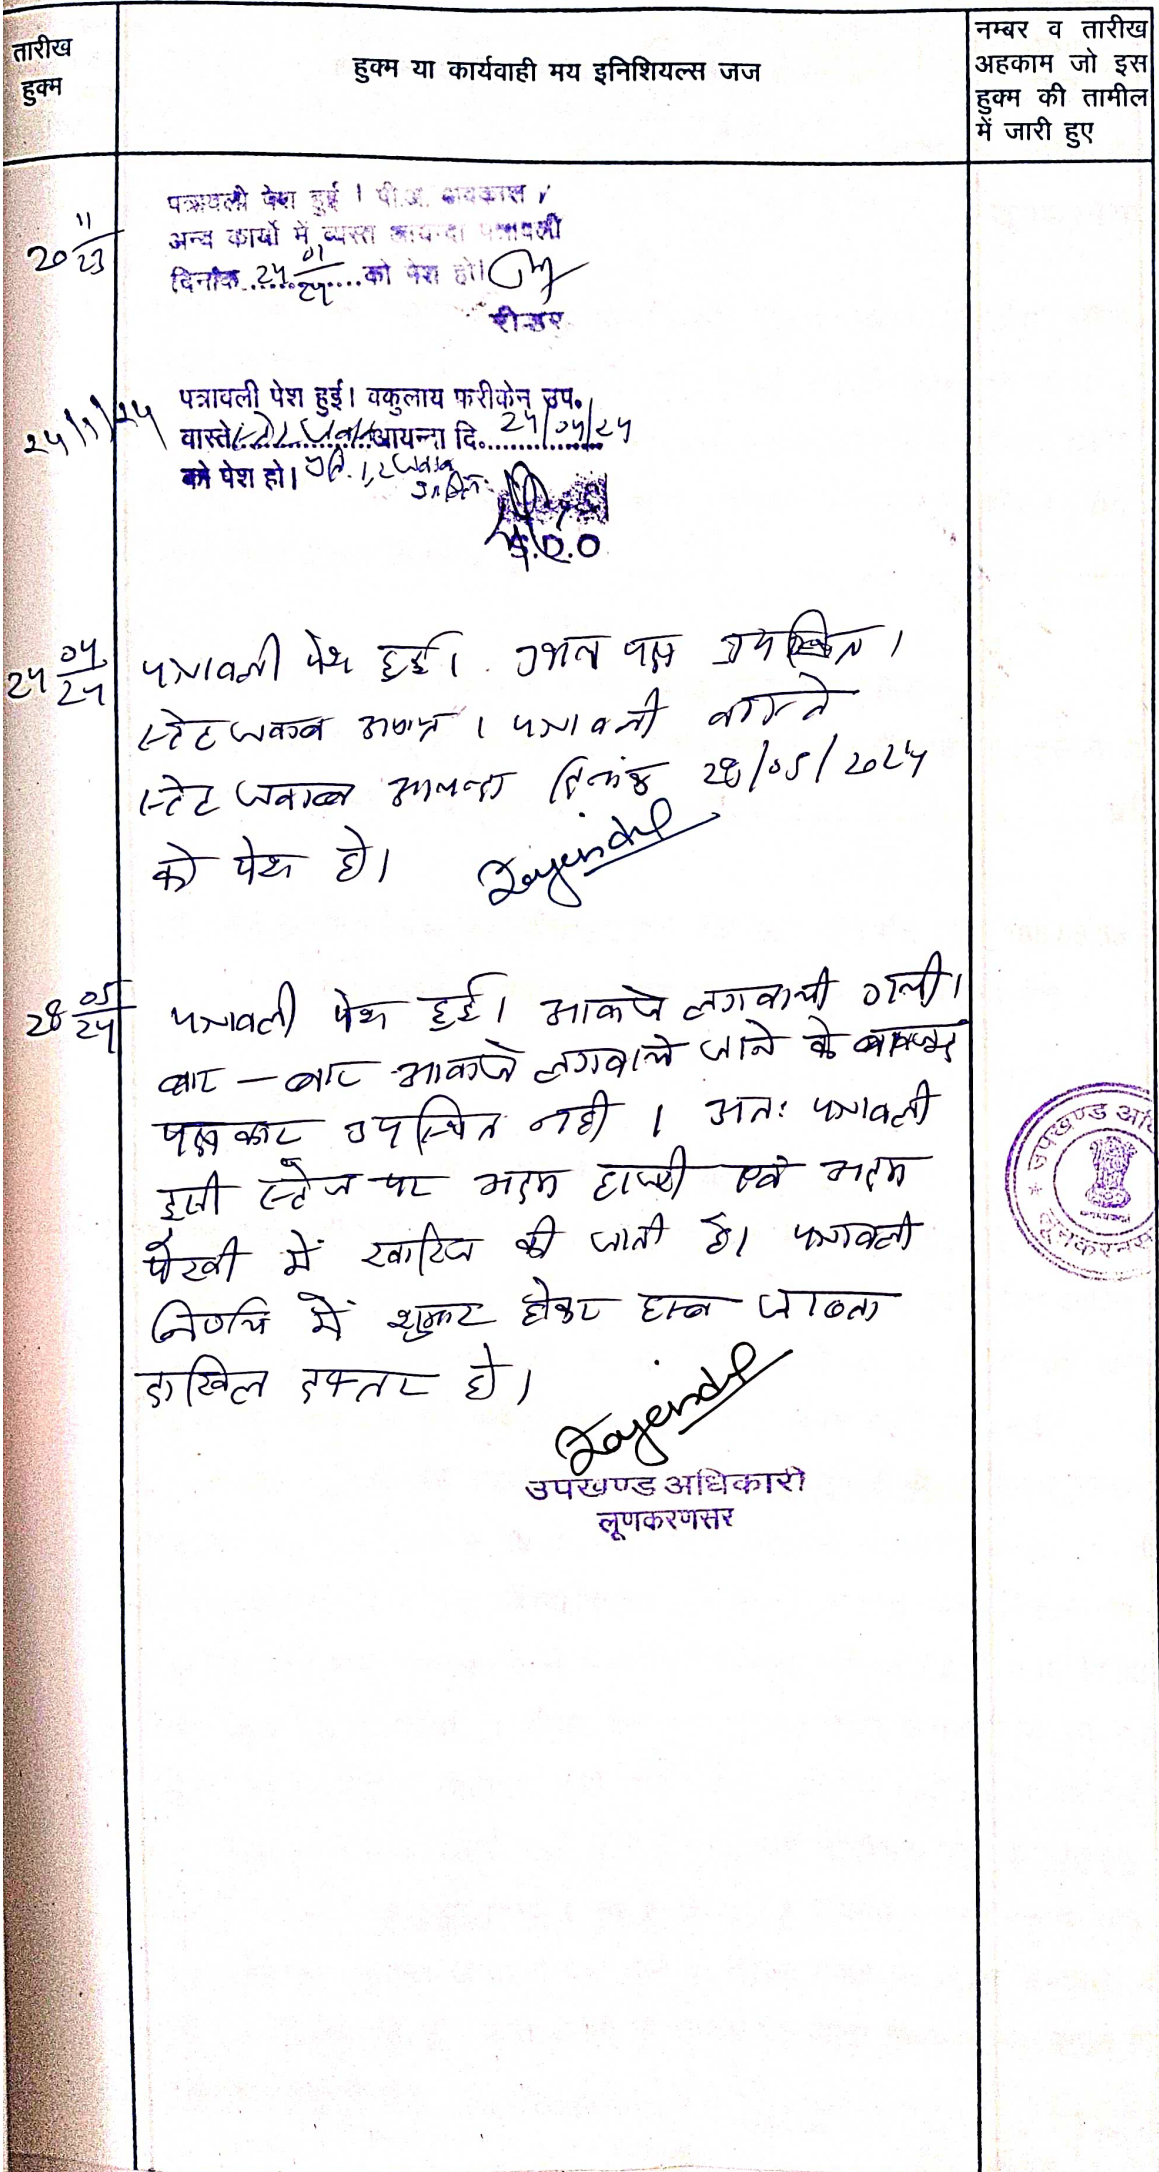 तारीख
हुक्म
हुक्म या कार्यवाही मय इनिशियल्स जज
नम्बर व तारीख
अहकाम जो इस
हुक्म की तामील
में जारी हुए
20 11/23
पत्रावली पेश हुई । पी.अ. अवकाश /
अन्य कार्यो में व्यस्त आयन्दा पत्रावली
दिनांक 24 01/24 को पेश हो।
रीडर
24/1/24
पत्रावली पेश हुई। वकुलाय फरीकेन उप.
वास्ते स्टेट जवाब आयन्दा दि. 24/04/24
को पेश हो।
S.D.O
24 04/24
पत्रावली पेश हुई। उभय पक्ष उपस्थित।
स्टेट जवाब अप्राप्त। पत्रावली वास्ते
स्टेट जवाब आयन्दा दिनांक 28/05/2024
को पेश हो।
28 05/24
पत्रावली पेश हुई। आवाजे लगवायी गयी।
बार - बार आवाजे लगवाये जाने के बावजूद
पक्षकार उपस्थित नही । अतः पत्रावली
इसी स्टेज पर अदम हाजरी एवं अदम
पैरवी में खारिज की जाती है। पत्रावली
निर्णय में शुमार होकर हस्ब जाब्ता
दाखिल दफ्तर हो।
उपखण्ड अधिकारी
लूणकरणसर